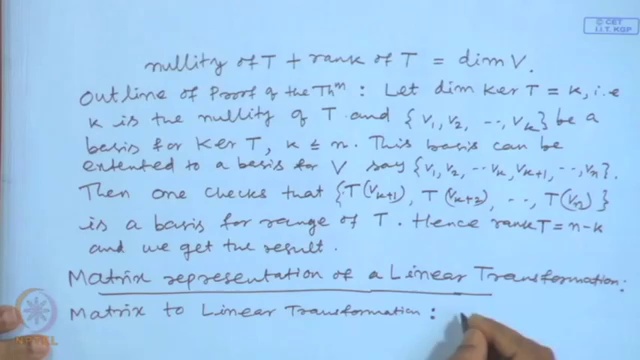 © CET
I.I.T. KGP
nullity of T + rank of T = dim V.
Outline of Proof of the Thm : Let dim Ker T = k, i.e
k is the nullity of T and {v1, v2, .., vk} be a
basis for Ker T, k ≤ n. This basis can be
extented to a basis for V say {v1, v2, .. vk, vk+1, .., vn}.
Then one checks that {T(vk+1), T(vk+2), .., T(vn)}
is a basis for range of T. Hence rank T = n-k
and we get the result.
Matrix representation of a Linear Transformation:
Matrix to Linear Transformation :
NPTEL